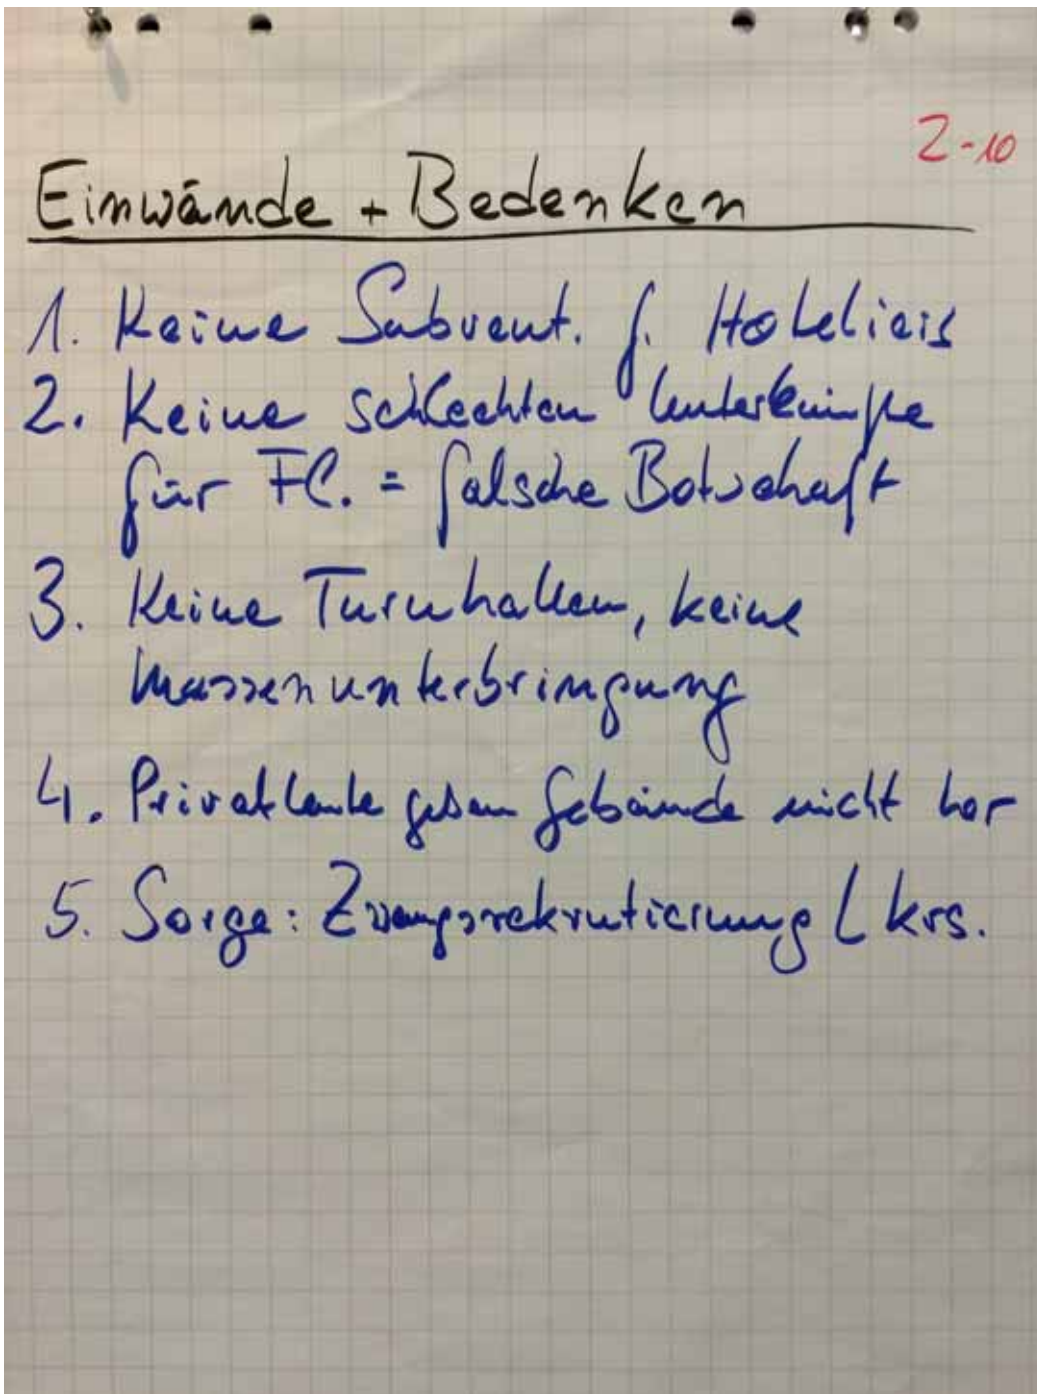 2-10
Einwände + Bedenken
1. Keine Subvent. f. Hoteliers
2. Keine schlechten Unterkünfte
für Fl. = falsche Botschaft
3. Keine Turnhallen, keine
Massenunterbringung
4. Privatleute geben Gebäude nicht her
5. Sorge: Zwangsrekrutierung Lkrs.